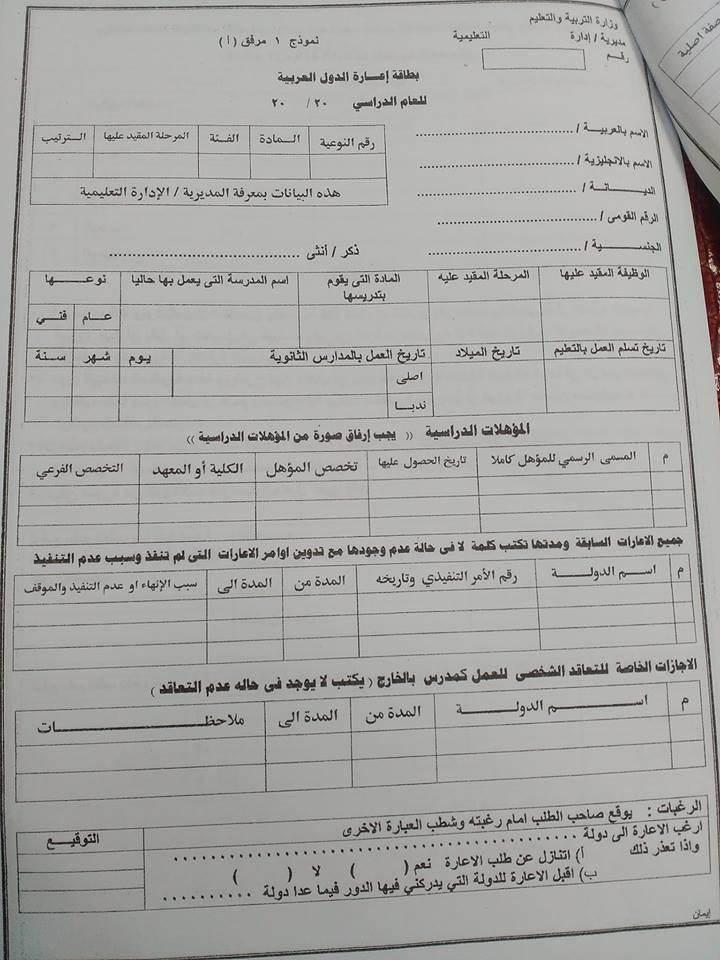 وزارة التربية والتعليم
مديرية / إدارة التعليمية
نموذج ١ مرفق (أ)
رقم
صفة اصلية
بطاقة إعارة الدول العربية
للعام الدراسي ٢٠ / ٢٠
الاسم بالعربية / ......................................
الاسم بالانجليزية / ......................................
الديانة / ......................................
الرقم القومى / ......................................
الجنسية / ......................................
ذكر / أنثى ......................................
رقم النوعية المادة الفئة المرحلة المقيد عليها الترتيب
هذه البيانات بمعرفة المديرية / الإدارة التعليمية
الوظيفة المقيد عليها المرحلة المقيد عليه المادة التى يقوم بتدريسها اسم المدرسة التى يعمل بها حاليا نوعها
عام فني
تاريخ تسلم العمل بالتعليم تاريخ الميلاد تاريخ العمل بالمدارس الثانوية يوم شهر سنة
اصلى
ندبا
المؤهلات الدراسية (( يجب إرفاق صورة من المؤهلات الدراسية ))
م المسمى الرسمي للمؤهل كاملا تاريخ الحصول عليها تخصص المؤهل الكلية أو المعهد التخصص الفرعي
جميع الاعارات السابقة ومدتها تكتب كلمة لا فى حالة عدم وجودها مع تدوين اوامر الاعارات التى لم تنفذ وسبب عدم التنفيذ
م اسم الدولة رقم الأمر التنفيذي وتاريخه المدة من المدة الى سبب الإنهاء او عدم التنفيذ والموقف
الاجازات الخاصة للتعاقد الشخصى للعمل كمدرس بالخارج ( يكتب لا يوجد فى حاله عدم التعاقد )
م اسم الدولة المدة من المدة الى ملاحظات
الرغبات : يوقع صاحب الطلب امام رغبته وشطب العبارة الاخرى
التوقيع
ارغب الاعارة الى دولة ......................................
واذا تعذر ذلك أ) اتنازل عن طلب الاعارة نعم ( ) لا ( )
ب) اقبل الاعارة للدولة التي يدركني فيها الدور فيما عدا دولة ..........
إيمان